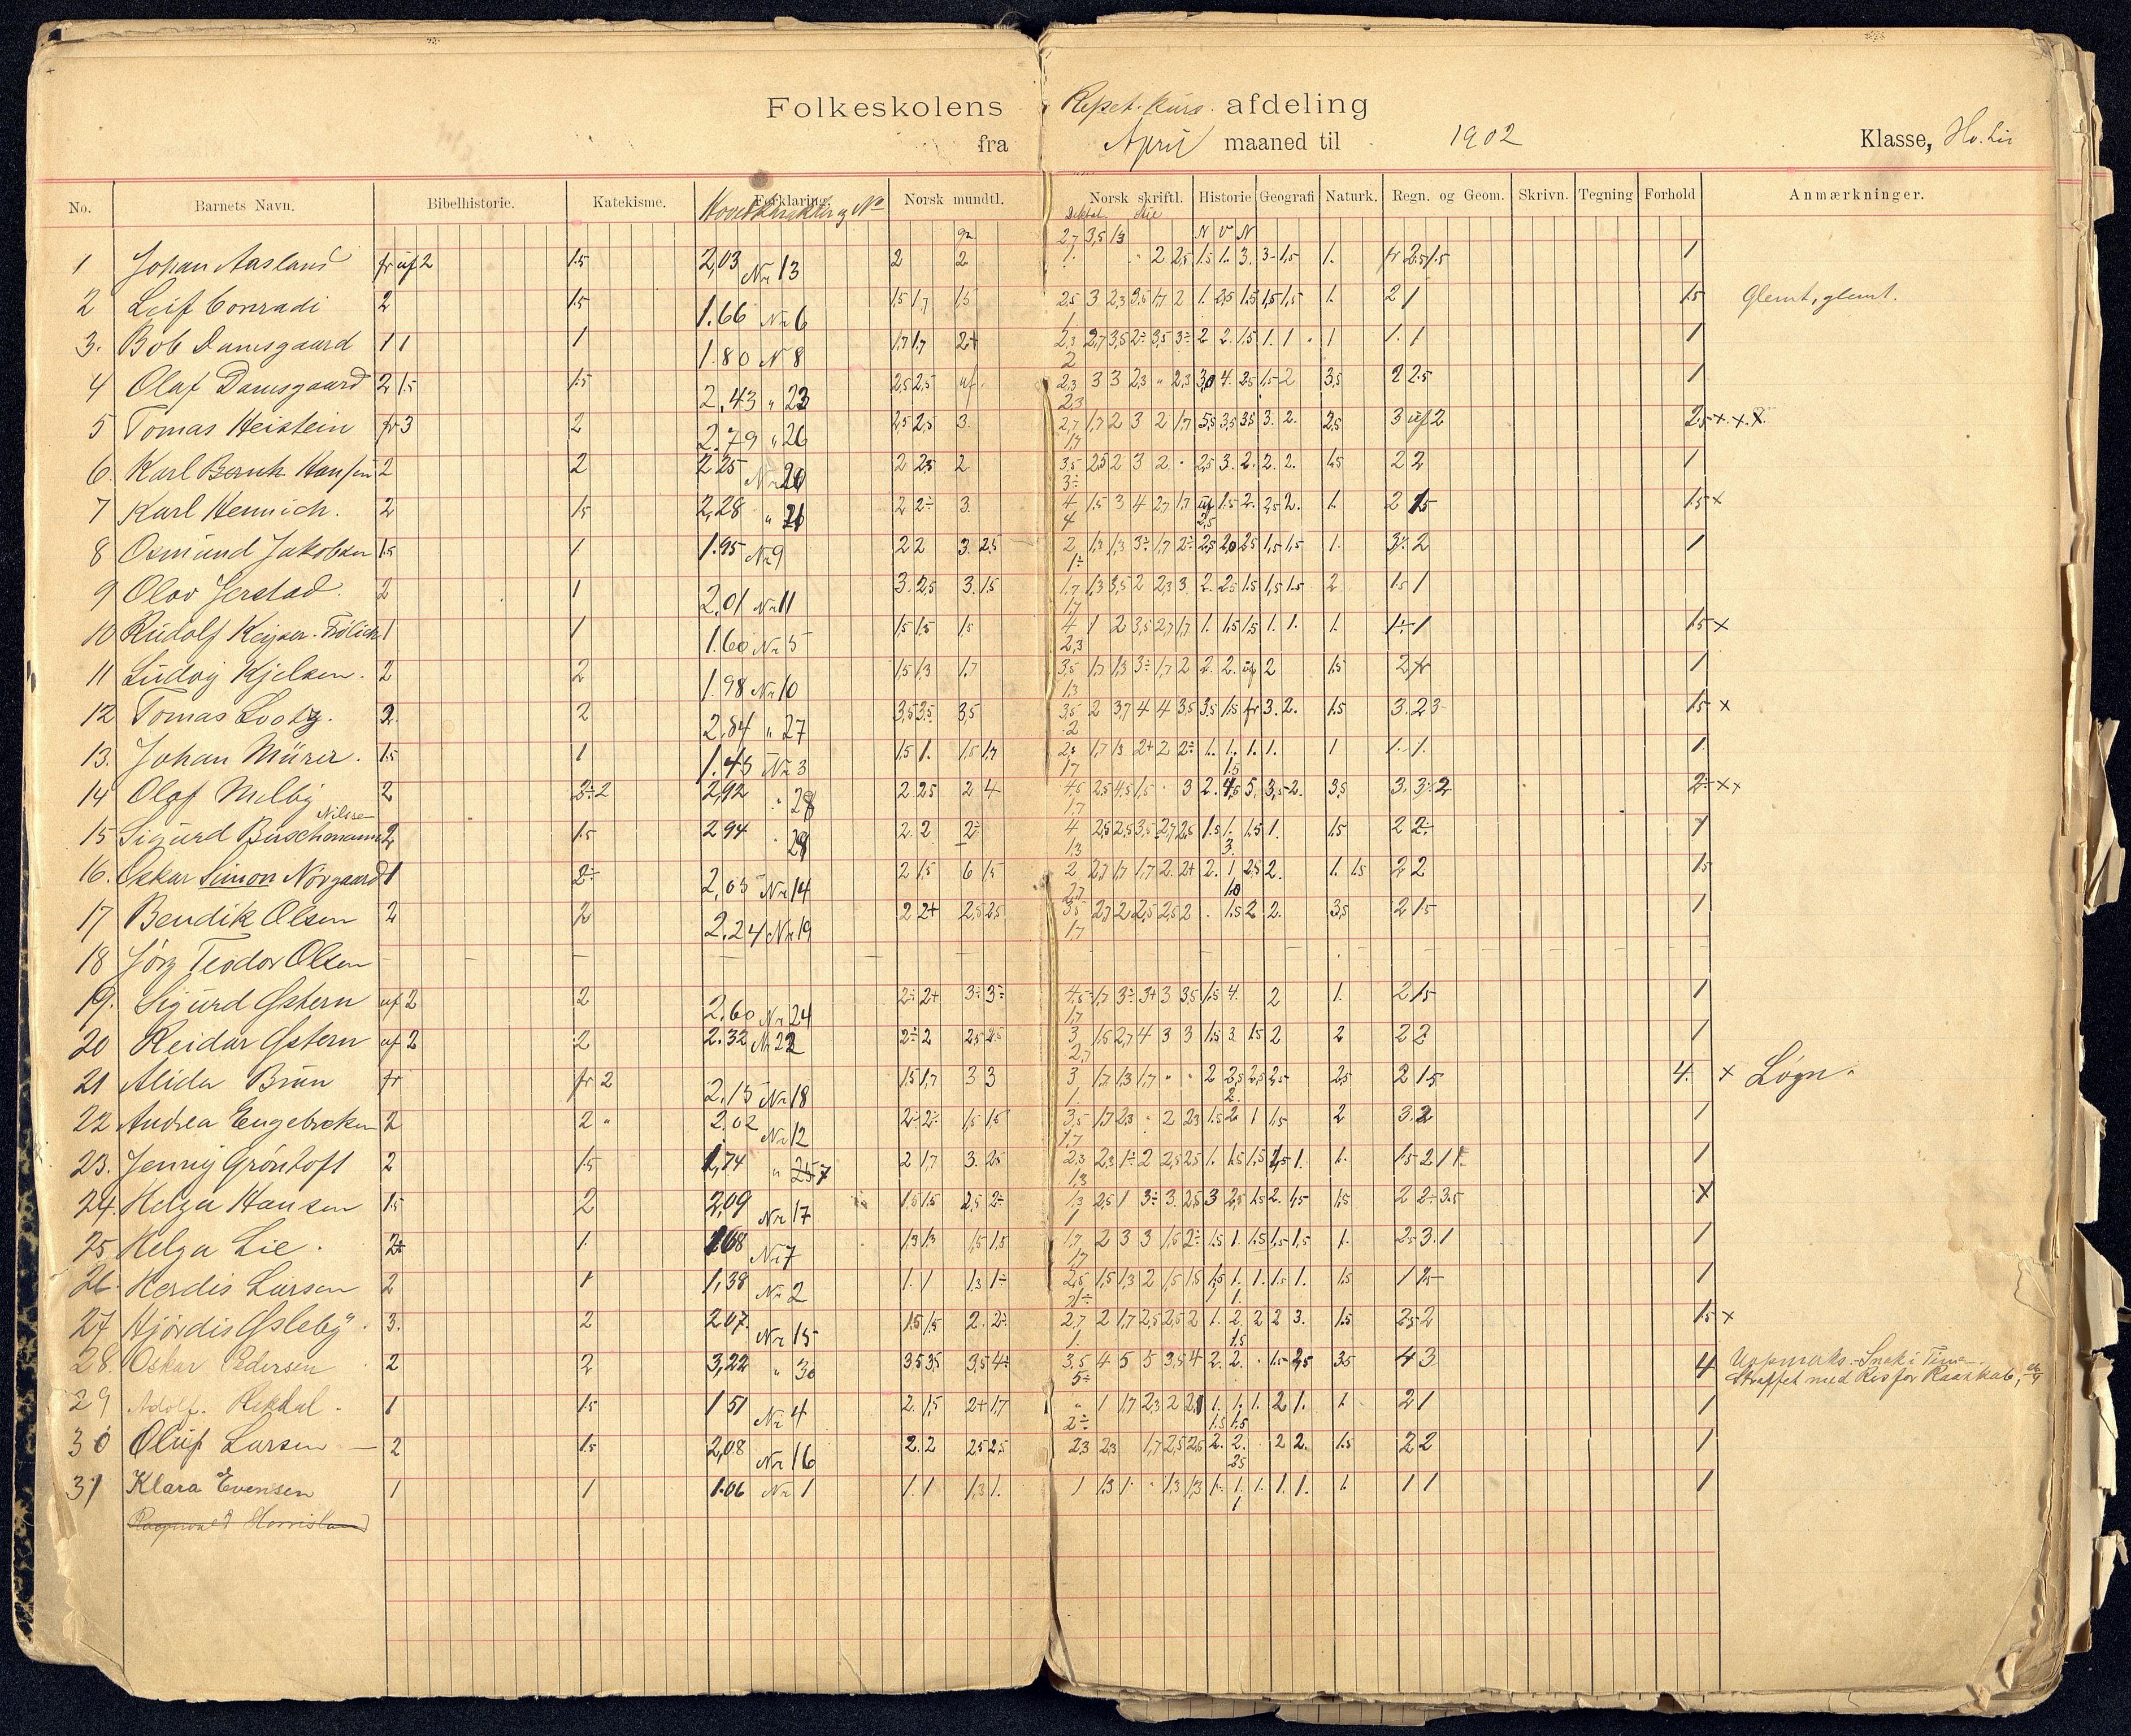 Folkeskolens Repet. kurs. afdeling
fra April maaned til 1902 Klasse,
No. Barnets Navn. Bibelhistorie. Katekisme. Forklaring. Norsk mundtl. Norsk skriftl. Historie Geografi Naturk. Regn. og Geom. Skrivn. Tegning Forhold Anmærkninger.
Hovedkarakter og No
Diktat Stil
2,7 3,5 1,3 N V N
1 Johan Aasland fr uf 2 1.5 2,03 Nr 13 2 2 1. 2 2,5 1.5 1. 3. 3- 1,5 1. fr 2.5 1.5 1
2 Leif Conradi 2 1.5 1.66 Nr 6 1,5 1,7 1,5 2,5 3 2,3 3,5 1,7 2 1. 2,5 1,5 1,5 1,5 1. 2 1 1.5 Glemt, glemt.
3. Bob Damsgaard 1 1 1 1.80 N 8 1,7 1,7 2+ 2,3 2,7 3,5 2÷ 3,5 3÷ 2 2. 1.5 1. 1 1 1. 1 1
4 Olaf Damsgaard 2 1.5 1.5 2.43 " 23 2,5 2,5 uf. 2,3 3 3 2,3 " 2,3 3,0 4. 2.5 1.5- 2 3,5 2 2.5 1
5 Tomas Heistein fr 3 2 2.79 " 26 2,5 2,5 3. 2,7 1,7 2 3 2 1,7 5,5 3,5 3,5 3. 2. 2,5 3 uf 2 2.5 x x x
6. Karl Bernh Hansen 2 2 2 25 Nr 20 2 2,5 2 3,5 2,5 2 3 2 2,5 3. 2. 2. 2. 1,5 2 2 1
7 Karl Hennich. 2 1.5 2,28 " 21 2 2÷ 3. 4 1.5 3 4 2,7 1,7 uf 1.5 2. 2,5 2. 1. 2 1.5 1.5 x
8 Osmund Jakobsen 1.5 1 1.95 Nr 9 2 2 3. 2,5 2 1,3 1,3 3÷ 1,7 2÷ 2,5 2,0 2,5 1,5 1,5 1. 3÷ 2 1
9 Olav Jerstad. 2 1 2.01 Nr 11 3. 2,5 3. 1.5 1,7 1,3 3,5 2 2,3 3 2. 2.5 1.5 1,5 1.5 2 1.5 1
10 Rudolf Keyser-Frölich 1 1 1.60 Nr 5 1,5 1,5 1,5 4 1 2 3,5 2,7 1,7 1. 1.5 1.5 1. 1. 1. 1÷ 1 1.5 x
11 Ludvig Kjelsen. 2 2 1.98 Nr 10 1,5 1,3 1,7 3,5 1,7 1,3 3÷ 1,7 2 2. 2. uf 2 1.5 2 fr 1
12 Tomas 2. 2 2.84 " 27 3,5 3,5 3,5 3,5 2 3,7 4 4 3,5 3,5 1.5 fr 3. 2. 1.5 3. 2 3 1.5 x
13. Johan Mürer. 1.5 1 1.45 Nr 3 1,5 1. 1,5 1,7 2,3 1,7 1,3 2+ 2 2÷ 1. 1. 1. 1. 1 1. 1. 1.
14 Olaf Melby 2 2÷ 2 2,92 " 28 2 2.5 2 4 4,5 2,5 4,5 1,5 3 2. 4,5 5. 3,5- 2. 3,5 3. 3÷ 2 2÷ x x
Nilsen
15 Sigurd Buschmann 2 1.5 2 94 " 29 2. 2 2÷ 4 2,5 2,5 3,5 2,7 2,5 1.5 1. 1.5 1. 1.5 2 2÷ 1
16. Oskar Simon Nörgaard 1 2÷ 2,05 Nr 14 2 1,5 6 1,5 2 2,7 1,7 1,7 2. 2+ 2. 1 2.5 2. 1. 1.5 2 2 1.5
17 Bendik Olsen 2 2 2.24 Nr 19 2 2+ 2,5 2,5 3,5 2,7 2 2,5 2,5 2 1.5 2 2. 3,5 2 1.5 1
18 Jörg Teodor Olsen
19. Sigurd Östern uf 2 2 2.60 Nr 24 2÷ 2+ 3÷ 3÷ 4,5 1,7 3÷ 3+ 3 3,5 1.5 4. 2 1. 2 1.5 1
20 Reidar Östern uf 2 2 2.32 Nr 22 2÷ 2 2,5 2.5 3 1.5 2,7 4 3 3 1.5 3 1.5 2 2 2 2 1
21 Alida Brun fr fr 2 2.15 Nr 18 1,5 1,7 3 3 3 1,7 1,3 1,7 " " 2 3,5 2,5 2,5 2,5 2 1.5 4. x Løgn.
22 Andrea Engebretsen 2 2 " 2.02 Nr 12 2÷ 2÷ 1,5 1,5 3,5 1,7 2,3 2 2,3 1.5 2 1 1.5 2 3. 2 1
23. Jenny Gröntoft 2 1.5 1,74 " 7 2 1,7 3. 2.5 2,3 2,3 1÷ 2 2,5 2,5 1. 1.5 1,5 1,5 1. 1. 1.5 2 1 1. 1
24. Helga Hansen 1.5 2 2,09 Nr 17 1,5 1,5 2,5 2÷ 1,3 2,5 1 3÷ 3. 2,5 3 2,5 1.5 2. 1,5 1,5 2 2÷ 3.5 1
25 Helga Lie. 2+ 1. 1.68 Nr 7 1,3 1,3 1,5 1,5 1,7 2 3 3 1,5 2÷ 1.5 1. 1.5 1,5 1,5 1. 2,5 3. 1 1
26. Herdis Larsen 2 1 1,38 Nr 2 1. 1 1,3 1÷ 2,5 1,5 1,3 2 1,5 1,5 1,5 1. 1. 1.5 1. 1.5 1 1.5 1
27 Hjördis Ösleby. 3. 2 2 07. Nr 15 1.5 1,5 2. 2÷ 2,7 2 1,7 2,5 2,5 2 1. 2. 2 2 3. 1.5 2,5 2 1.5 x
28. Oskar Pedersen 2 2 3,22 " 30 3,5 3,5 3,5 4÷ 3,5 4 5 5 3,5 4 2. 2. 1.5 2,5 3.5 4 3 4 Uopmerks. Snak i Time.
Straffet med Ris for Raaskab,
29 Adolf. Rekdal. 1 1.5 1 51 Nr 4 2. 1,5 2+ 1,7 " 1 1,7 2,3 2 2,1 1. 1. 1. 2 1. 1. 2 1 1
30 Oluf Larsen 2 1.5 2,08 Nr 16 2. 2 2.5 2.5 2,3 2,3 1,7 2,5 2,5 2. 2. 2 2. 1.5 2 2 1
31 Klara Evensen 1 1 1.06 Nr 1 1. 1 1,3 1. 1 1,3 1 1,3 1,3 1. 1. 1. 1. 1. 1. 1 1 1